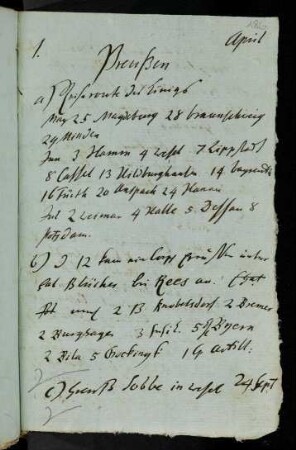 April
1.
Preußen
a) Reiseroute des Königs
May 25 Magdeburg 28 braunschweig
29 Minden
Jun 3 Hamm 4 wesel 7 Lippstadt
8 Cassel 13 Hildburghausen 14 bayreuth
16 Fürth 20 Anspach 24 Hanau
Jul 2 weimar 4 Halle 5 Dessau 8
Potsdam.
b) D 12 kam ein Corps Preußen unter
Blücher bei Rees an.
2 B Knobelsdorf 2 Bremer
2 3 Füsil. 5
2 Bila 5 1 G Artill.
c) Tobbe in wesel 24 Sept